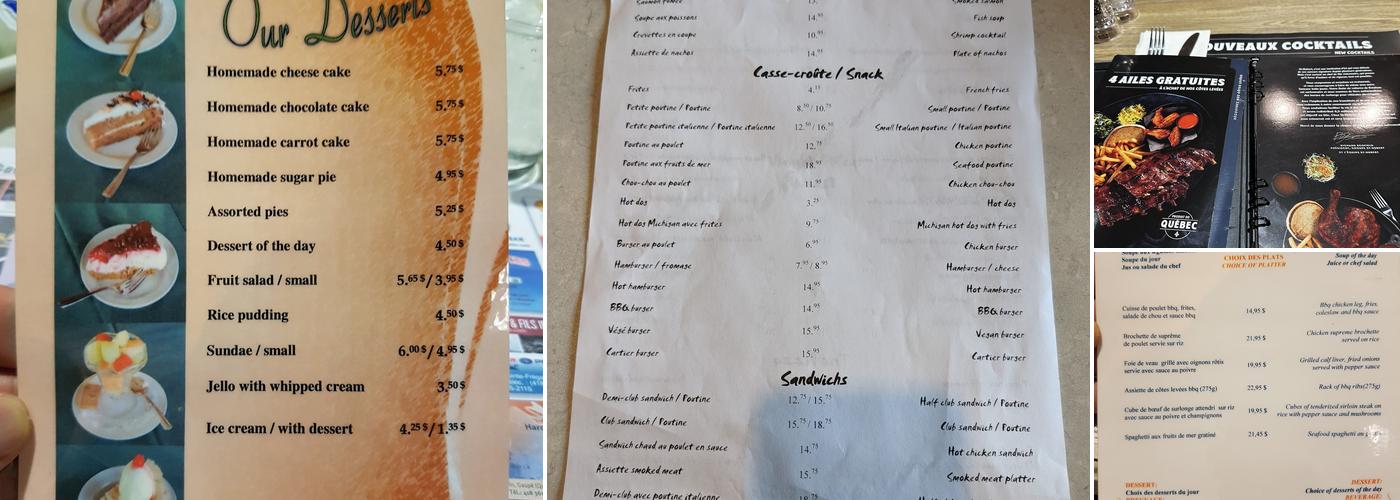 Our Desserts
Homemade cheese cake 5.75 $
Homemade chocolate cake 5.75 $
Homemade carrot cake 5.75 $
Homemade sugar pie 4.95 $
Assorted pies 5.25 $
Dessert of the day 4.50 $
Fruit salad / small 5.65 $ / 3.95 $
Rice pudding 4.50 $
Sundae / small 6.00 $ / 4.95 $
Jello with whipped cream 3.50 $
Ice cream / with dessert 4.25 $ / 1.35 $
Saumon fumée Smoked salmon
Soupe aux poissons 14.95 Fish soup
Crevettes en coupe 10.95 Shrimp cocktail
Assiette de nachos 14.95 Plate of nachos
Casse-croûte / Snack
Frites French fries
Petite poutine / Poutine 8.50 / 10.75 Small poutine / Poutine
Petite poutine italienne / Poutine italienne 12.50 / 16.50 Small Italian poutine / Italian poutine
Poutine au poulet 12.75 Chicken poutine
Poutine aux fruits de mer 18.95 Seafood poutine
Chou-chou au poulet 11.95 Chicken chou-chou
Hot dog 3.25 Hot dog
Hot dog Michigan avec frites 9.75 Michigan hot dog with fries
Burger au poulet 6.95 Chicken burger
Hamburger / fromage 7.95 / 8.95 Hamburger / cheese
Hot hamburger 14.95 Hot hamburger
BBQ burger 14.95 BBQ burger
Végé burger 15.95 Vegan burger
Cartier burger 15.95 Cartier burger
Sandwichs
Demi-club sandwich / Poutine 12.75 / 15.75 Half club sandwich / Poutine
Club sandwich / Poutine 15.75 / 18.75 Club sandwich / Poutine
Sandwich chaud au poulet en sauce 14.75 Hot chicken sandwich
Assiette smoked meat 15.75 Smoked meat platter
Demi-club avec poutine italienne
OUVEAUX COCKTAILS
NEW COCKTAILS
4 AILES GRATUITES
À L'ACHAT DE NOS CÔTES LEVÉES
PRODUIT DU
QUÉBEC
Soupe du jour Soup of the day
Jus ou salade du chef Juice or chef salad
CHOIX DES PLATS
CHOICE OF PLATTER
Cuisse de poulet bbq, frites,
salade de chou et sauce bbq 14,95 $ Bbq chicken leg, fries,
coleslaw and bbq sauce
Brochette de suprême
de poulet servie sur riz 21,95 $ Chicken supreme brochette
served on rice
Foie de veau grillé avec oignons rôtis
servie avec sauce au poivre 19,95 $ Grilled calf liver, fried onions
served with pepper sauce
Assiette de côtes levées bbq (275g) 22,95 $ Rack of bbq ribs(275g)
Cube de bœuf de surlonge attendri sur riz
avec sauce au poivre et champignons 19,95 $ Cubes of tenderized sirloin steak on
rice with pepper sauce and mushrooms
Spaghetti aux fruits de mer gratiné 21,45 $ Seafood spaghetti au
DESSERT: DESSERT:
Choix des desserts du jour Choice of desserts of the day